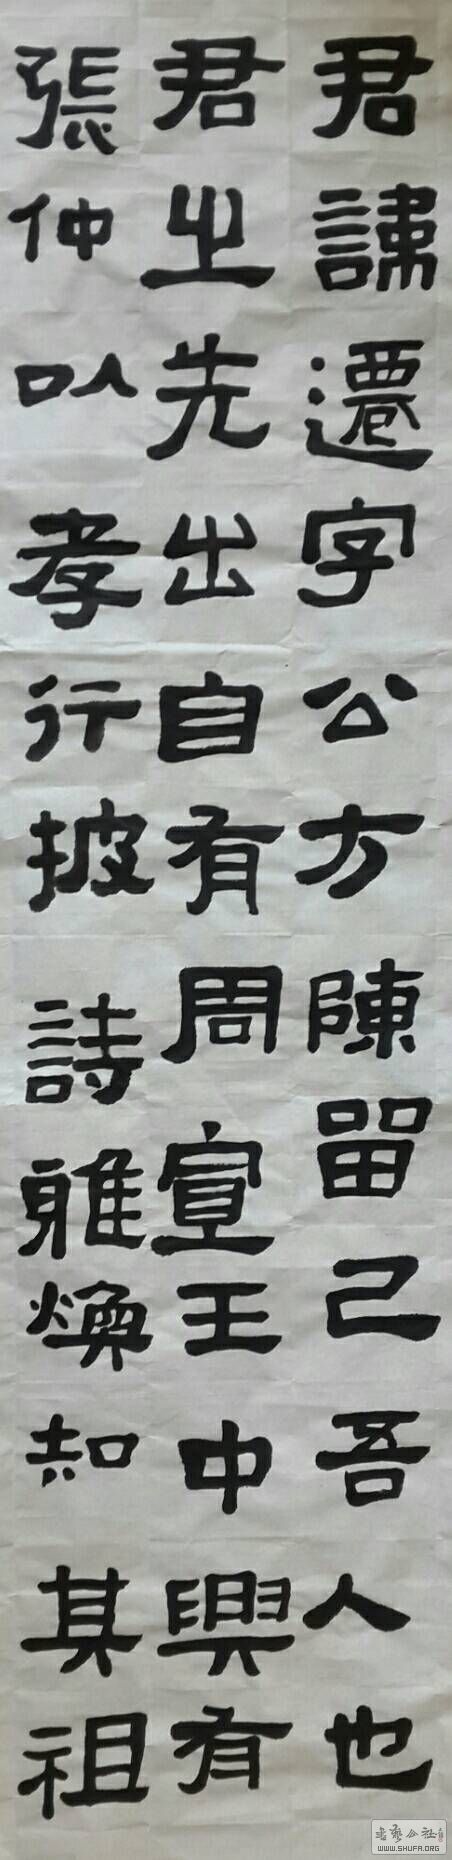 君諱遷字公方陳留己吾人也
君之先出自有周宣王中興有
張仲以孝行披詩雅煥知其祖
WWW.SHUFA.ORG